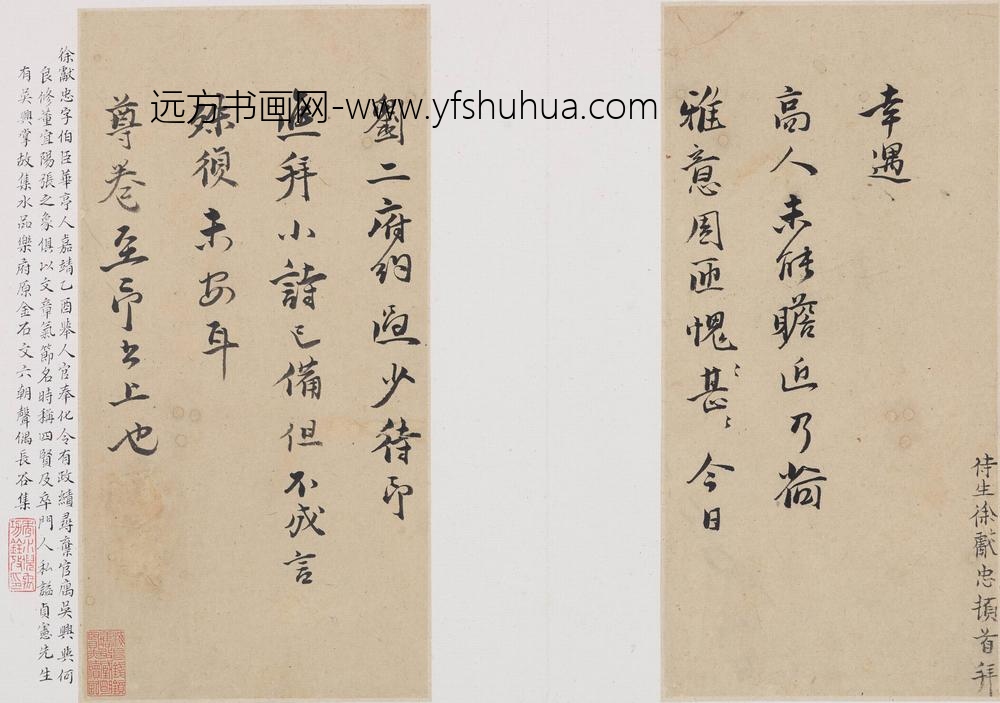 侍生徐獻忠頓首拜
幸遇
高人未能瞻近乃荷
雅意周匝愧甚ミ今日
劉二府約過少待即
進拜小詩已備但不成言
殊傎未安耳
尊卷至即書上也
徐獻忠字伯臣華亭人嘉靖乙酉舉人官奉化令有政績尋棄官寓吳興與何
良修董宜陽張之象俱以文章氣節名時稱四賢及卒門人私諡貞憲先生
有吳興掌故集水品樂府原金石文六朝聲偶長谷集
远方书画网-www.yfshuhua.com